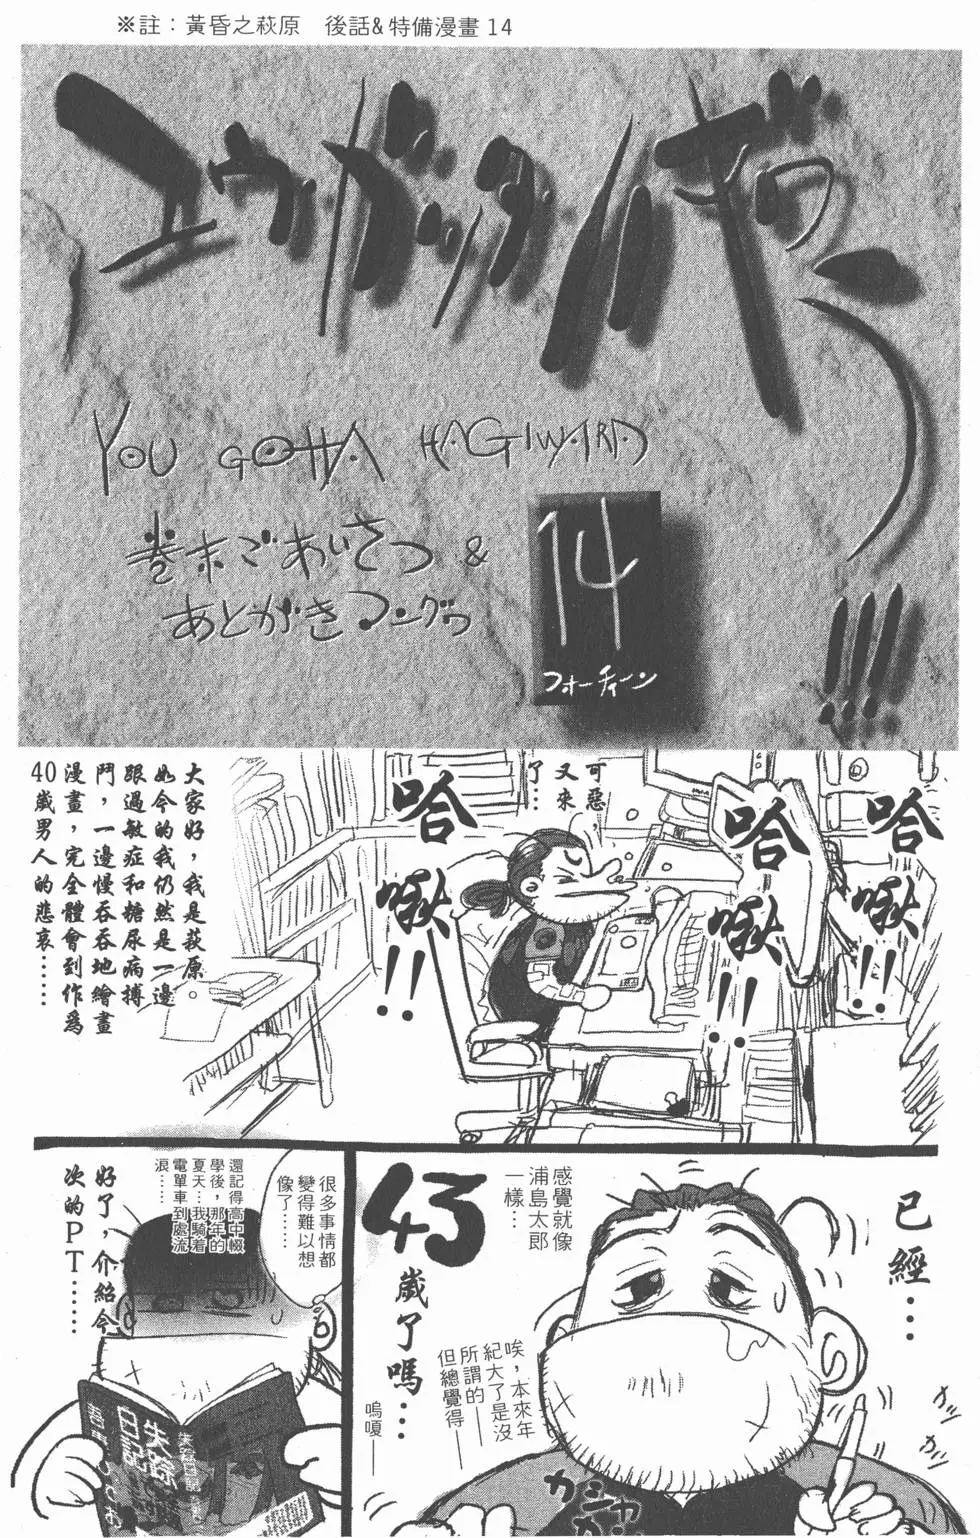 ※註：黃昏之萩原　後話&特備漫畫 14
ユウガッタハギワラ!!!
YOU GOTTA HAGIWARA
巻末ごあいさつ &
あとがきマングゥ
14
フォーティーン
可惡，
又來
了…
哈啾!!
哈啾!!
哈啾!!
大家好，我是萩原
如今的我仍然是一邊
跟過敏症和糖尿病搏
鬥，一邊慢吞吞地繪畫
漫畫，完全體會到作為
40歲男人的悲哀……
已經…
感覺就像
浦島太郎
一樣…
43
歲了嗎…
唉，本來年
紀大了是沒
所謂的——
但總覺得——
嗚嗄——
カッ
カッ
カシャカシャ
很多事情都
變得難以想
像了……
還記得高中輟
學後，那年的
夏天…我騎着
電單車到處流
浪……
好了，介紹今
次的PT……
失踪日記
失踪
日記
吾妻ひでお